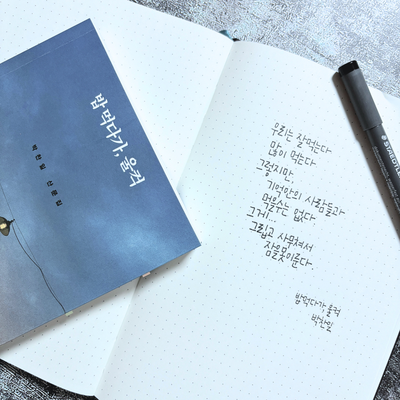 밥 먹다가, 울컥
박찬일 산문집
우리는 잘먹는다
많이 먹는다
그렇지만,
기억안의 사람들과
먹을수는 없다
그게...
그립고 사무쳐서
잠을못이룬다.
밥먹다가, 울컥
박찬일
STAEDTLER